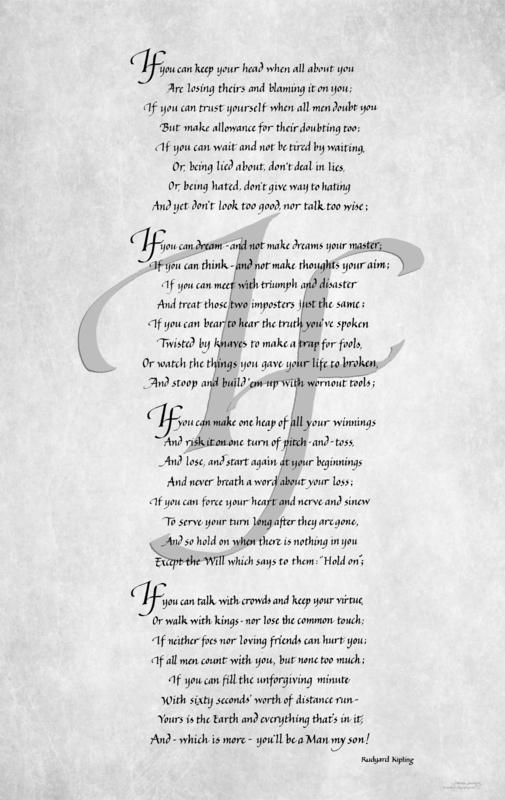 If you can keep your head when all about you
Are losing theirs and blaming it on you;
If you can trust yourself when all men doubt you
But make allowance for their doubting too:
If you can wait and not be tired by waiting,
Or, being lied about, don't deal in lies,
Or, being hated, don't give way to hating
And yet don't look too good, nor talk too wise;
If you can dream - and not make dreams your master;
If you can think - and not make thoughts your aim;
If you can meet with triumph and disaster
And treat those two imposters just the same:
If you can bear to hear the truth you've spoken
Twisted by knaves to make a trap for fools,
Or watch the things you gave your life to broken,
And stoop and build 'em up with wornout tools;
If you can make one heap of all your winnings
And risk it on one turn of pitch-and-toss,
And lose, and start again at your beginnings
And never breath a word about your loss;
If you can force your heart and nerve and sinew
To serve your turn long after they are gone,
And so hold on when there is nothing in you
Except the Will which says to them: "Hold on";
If you can talk with crowds and keep your virtue,
Or walk with kings - nor lose the common touch;
If neither foes nor loving friends can hurt you;
If all men count with you, but none too much;
If you can fill the unforgiving minute
With sixty seconds' worth of distance run -
Yours is the Earth and everything that's in it,
And - which is more - you'll be a Man my son!
Rudyard Kipling
If